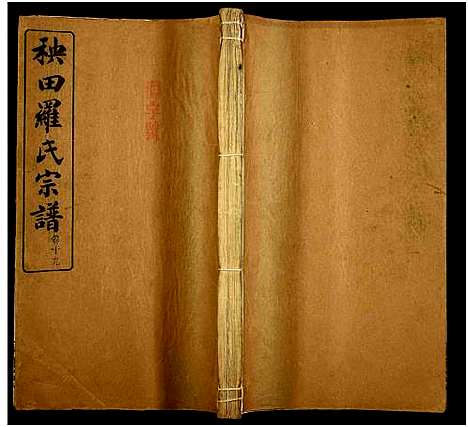 秧田羅氏宗譜
卷十九